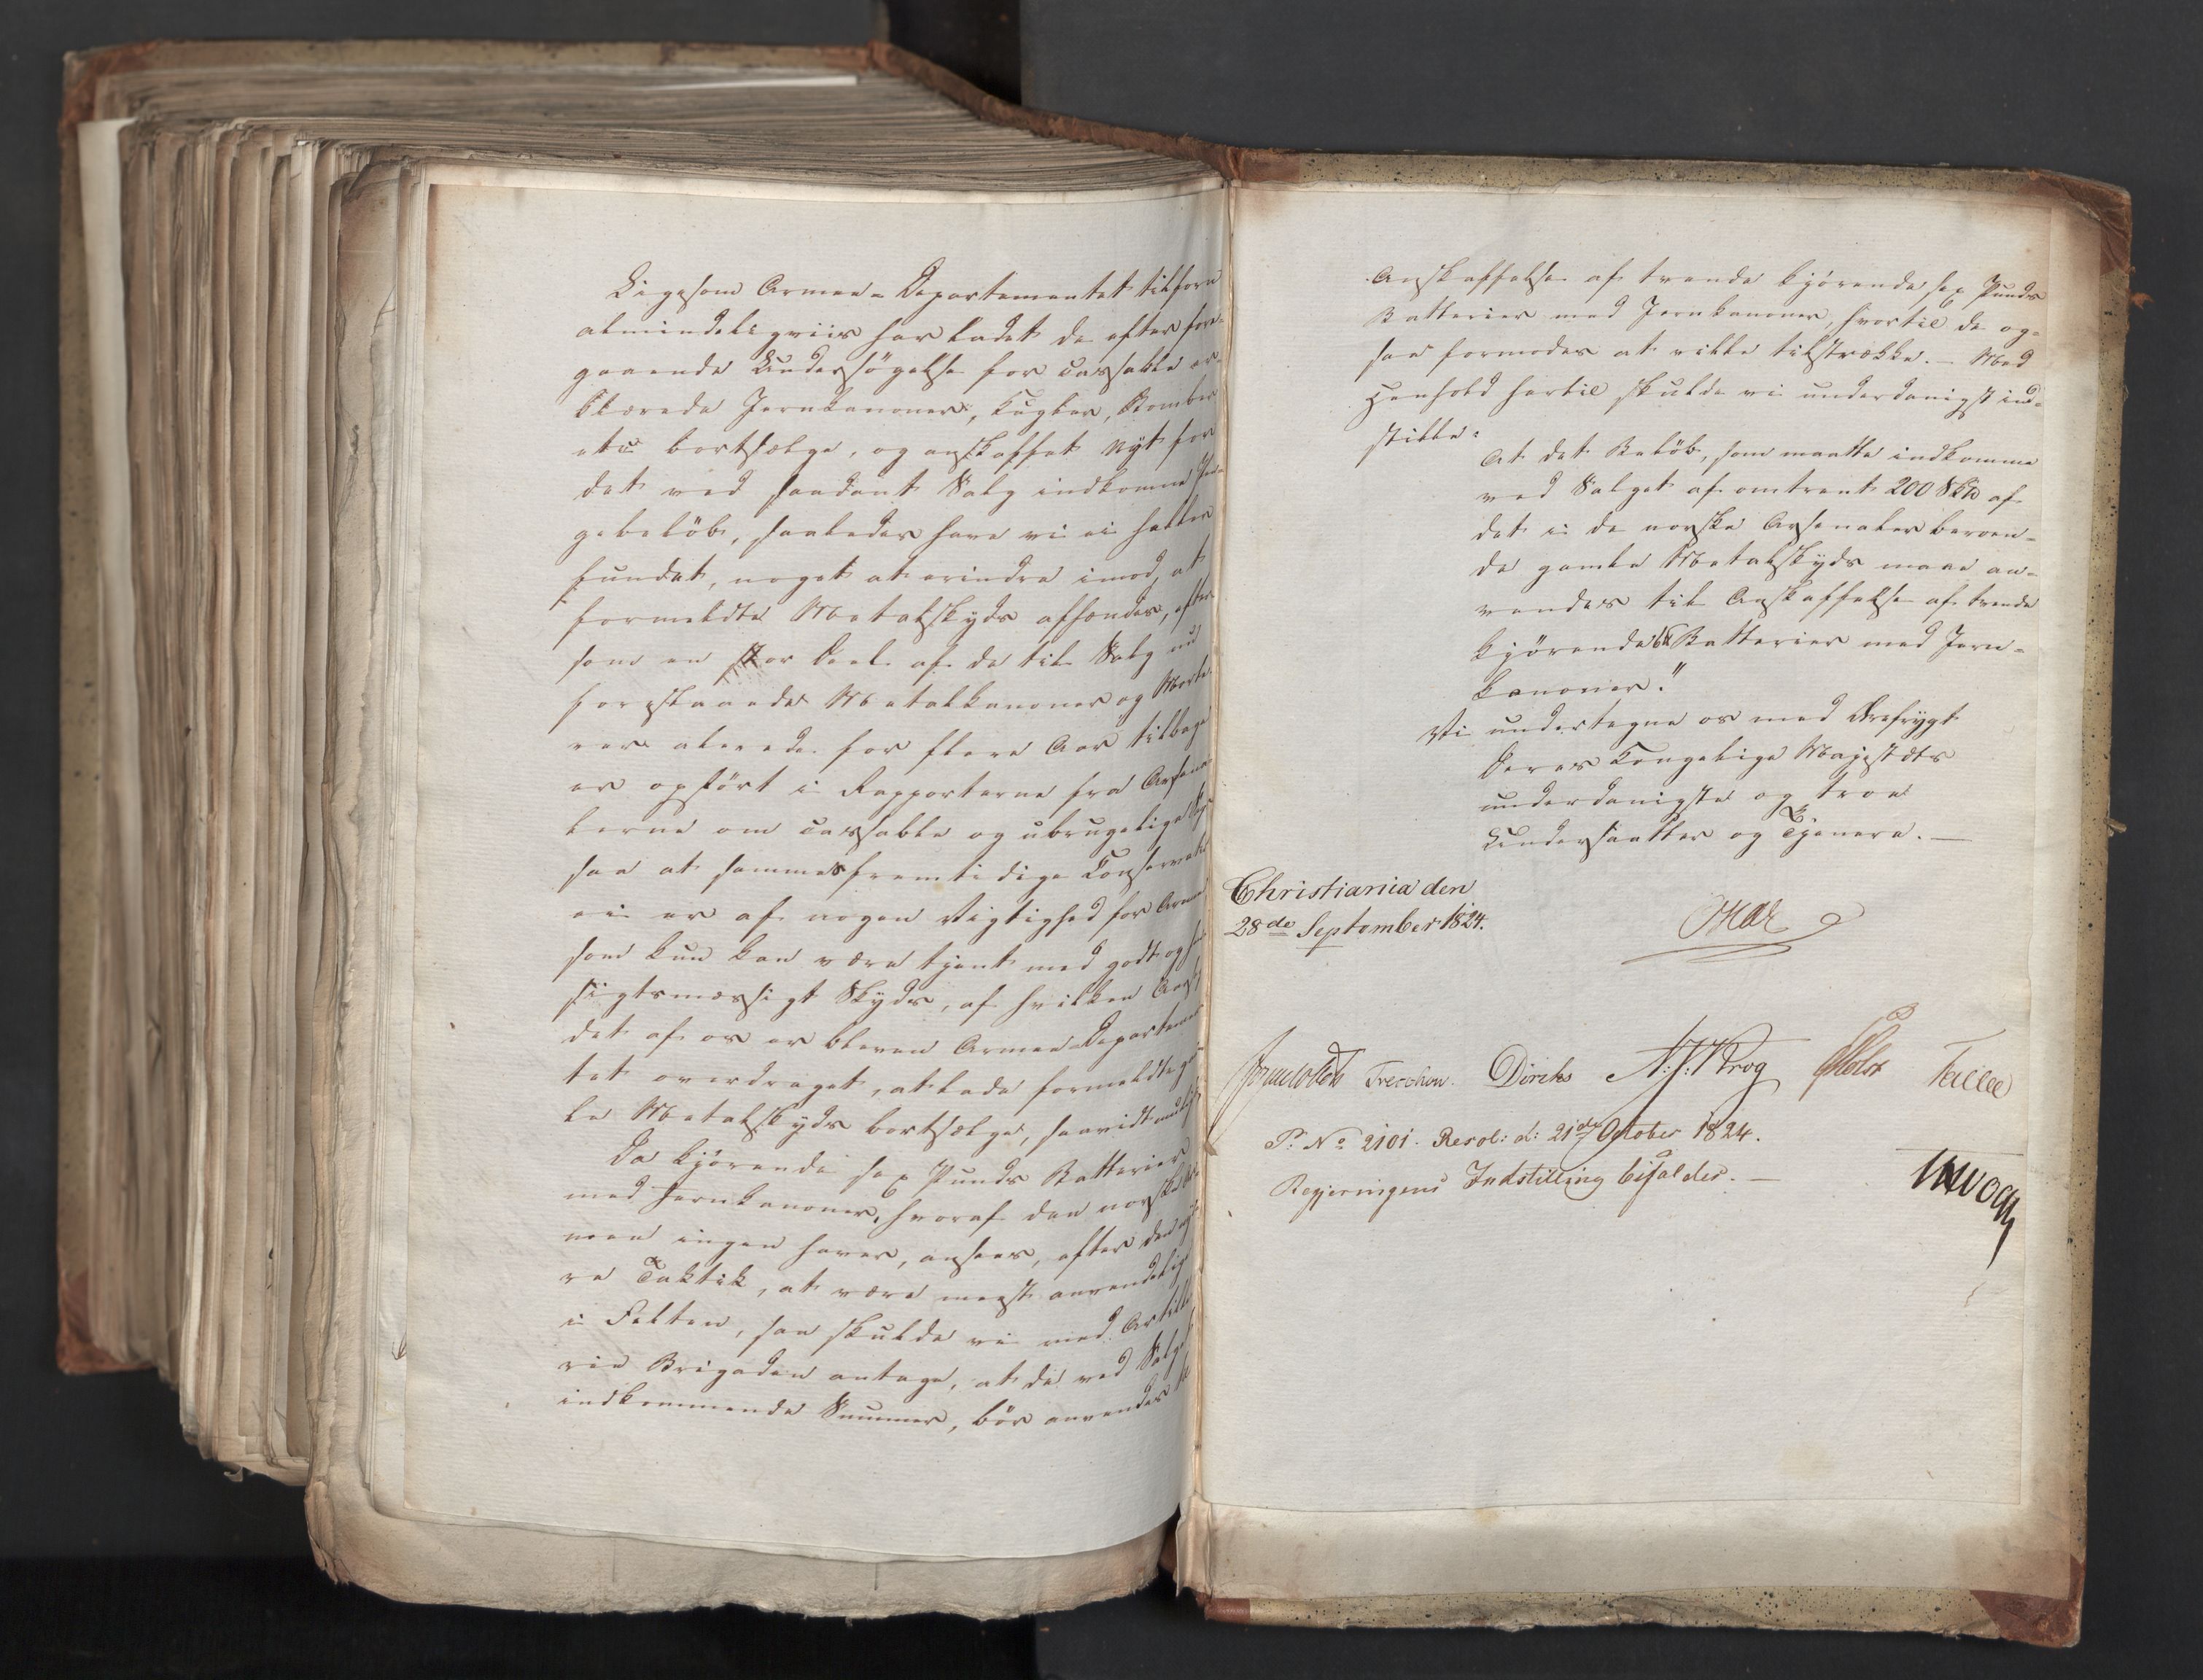 Ligesom Armee-Departementet tilforn
almindeligviis har ladet de efter fore-
gaaende Undersøgelse for cassable er-
klærede Jernkanoner, Kugler, Bomber
etc bortsælge, og anskaffet Nyt for
det ved saadant Salg indkomne Pen-
gebeløb, saaledes have vi ei heller
fundet, noget at erindre imod, at
formeldte Metalskyds afhændes, efter
som en stor Deel af de til Salg
foreslaaede Metalkanoner og Morte-
rer allerede for flere Aar tilbage
er opført i Rapporterne fra Arsena-
lerne om cassable og ubrugelige
saa at sammes fremtidige Conservation
ei er af nogen Vigtighed for Armeen
som kun kan være tjent med godt og hen-
sigtsmæssigt Skyds, af hvilken Aarsag
det af os er bleven Armee-Departemen-
tet overdraget, at lade formeldte gam-
le Metalskyds bortsælge, saavidt muligt
Da kjørende sex Punds Batterier
med Jernkanoner, hvoraf den norske Ar-
mee ingen haver, ansees, efter den nye-
re Taktik, at være meest anvendelig
i Felten, saa skulde vi med Artille-
rie Brigaden antage, at de ved Salget
indkommende Summer, bør anvendes til
Anskaffelse af tvende kjørende sex Punds
Batterier med Jernkanoner, hvortil de og-
saa formodes at ville tilstrække. – Med
Henhold hertil skulde vi underdanigst ind-
stille:
At det Beløb, som maatte indkomme
ved Salget af omtrent 200 Sk℔ af
det i de norske Arsenaler beroen-
de gamle Metalskyds maae an-
vendes til Anskaffelse af tvende
kjørende 6℔ Batterier med Jern-
kanoner."
Vi undertegne os med Ærefrygt
Deres Kongelige Majestæts
underdanigste og troe
Undersaatter og Tjenere. —
Christiania den
28de September 1824.
Oscar
Treschow. Diriks A. J. Krog Holst
P: No 2101. Resol: d: 21de October 1824.
Regjeringens Indstilling bifaldes. —